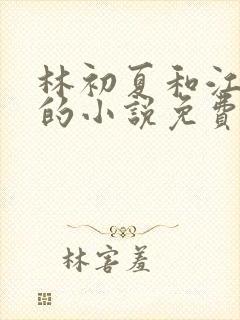 林初夏和江
的小説免費
林害羞